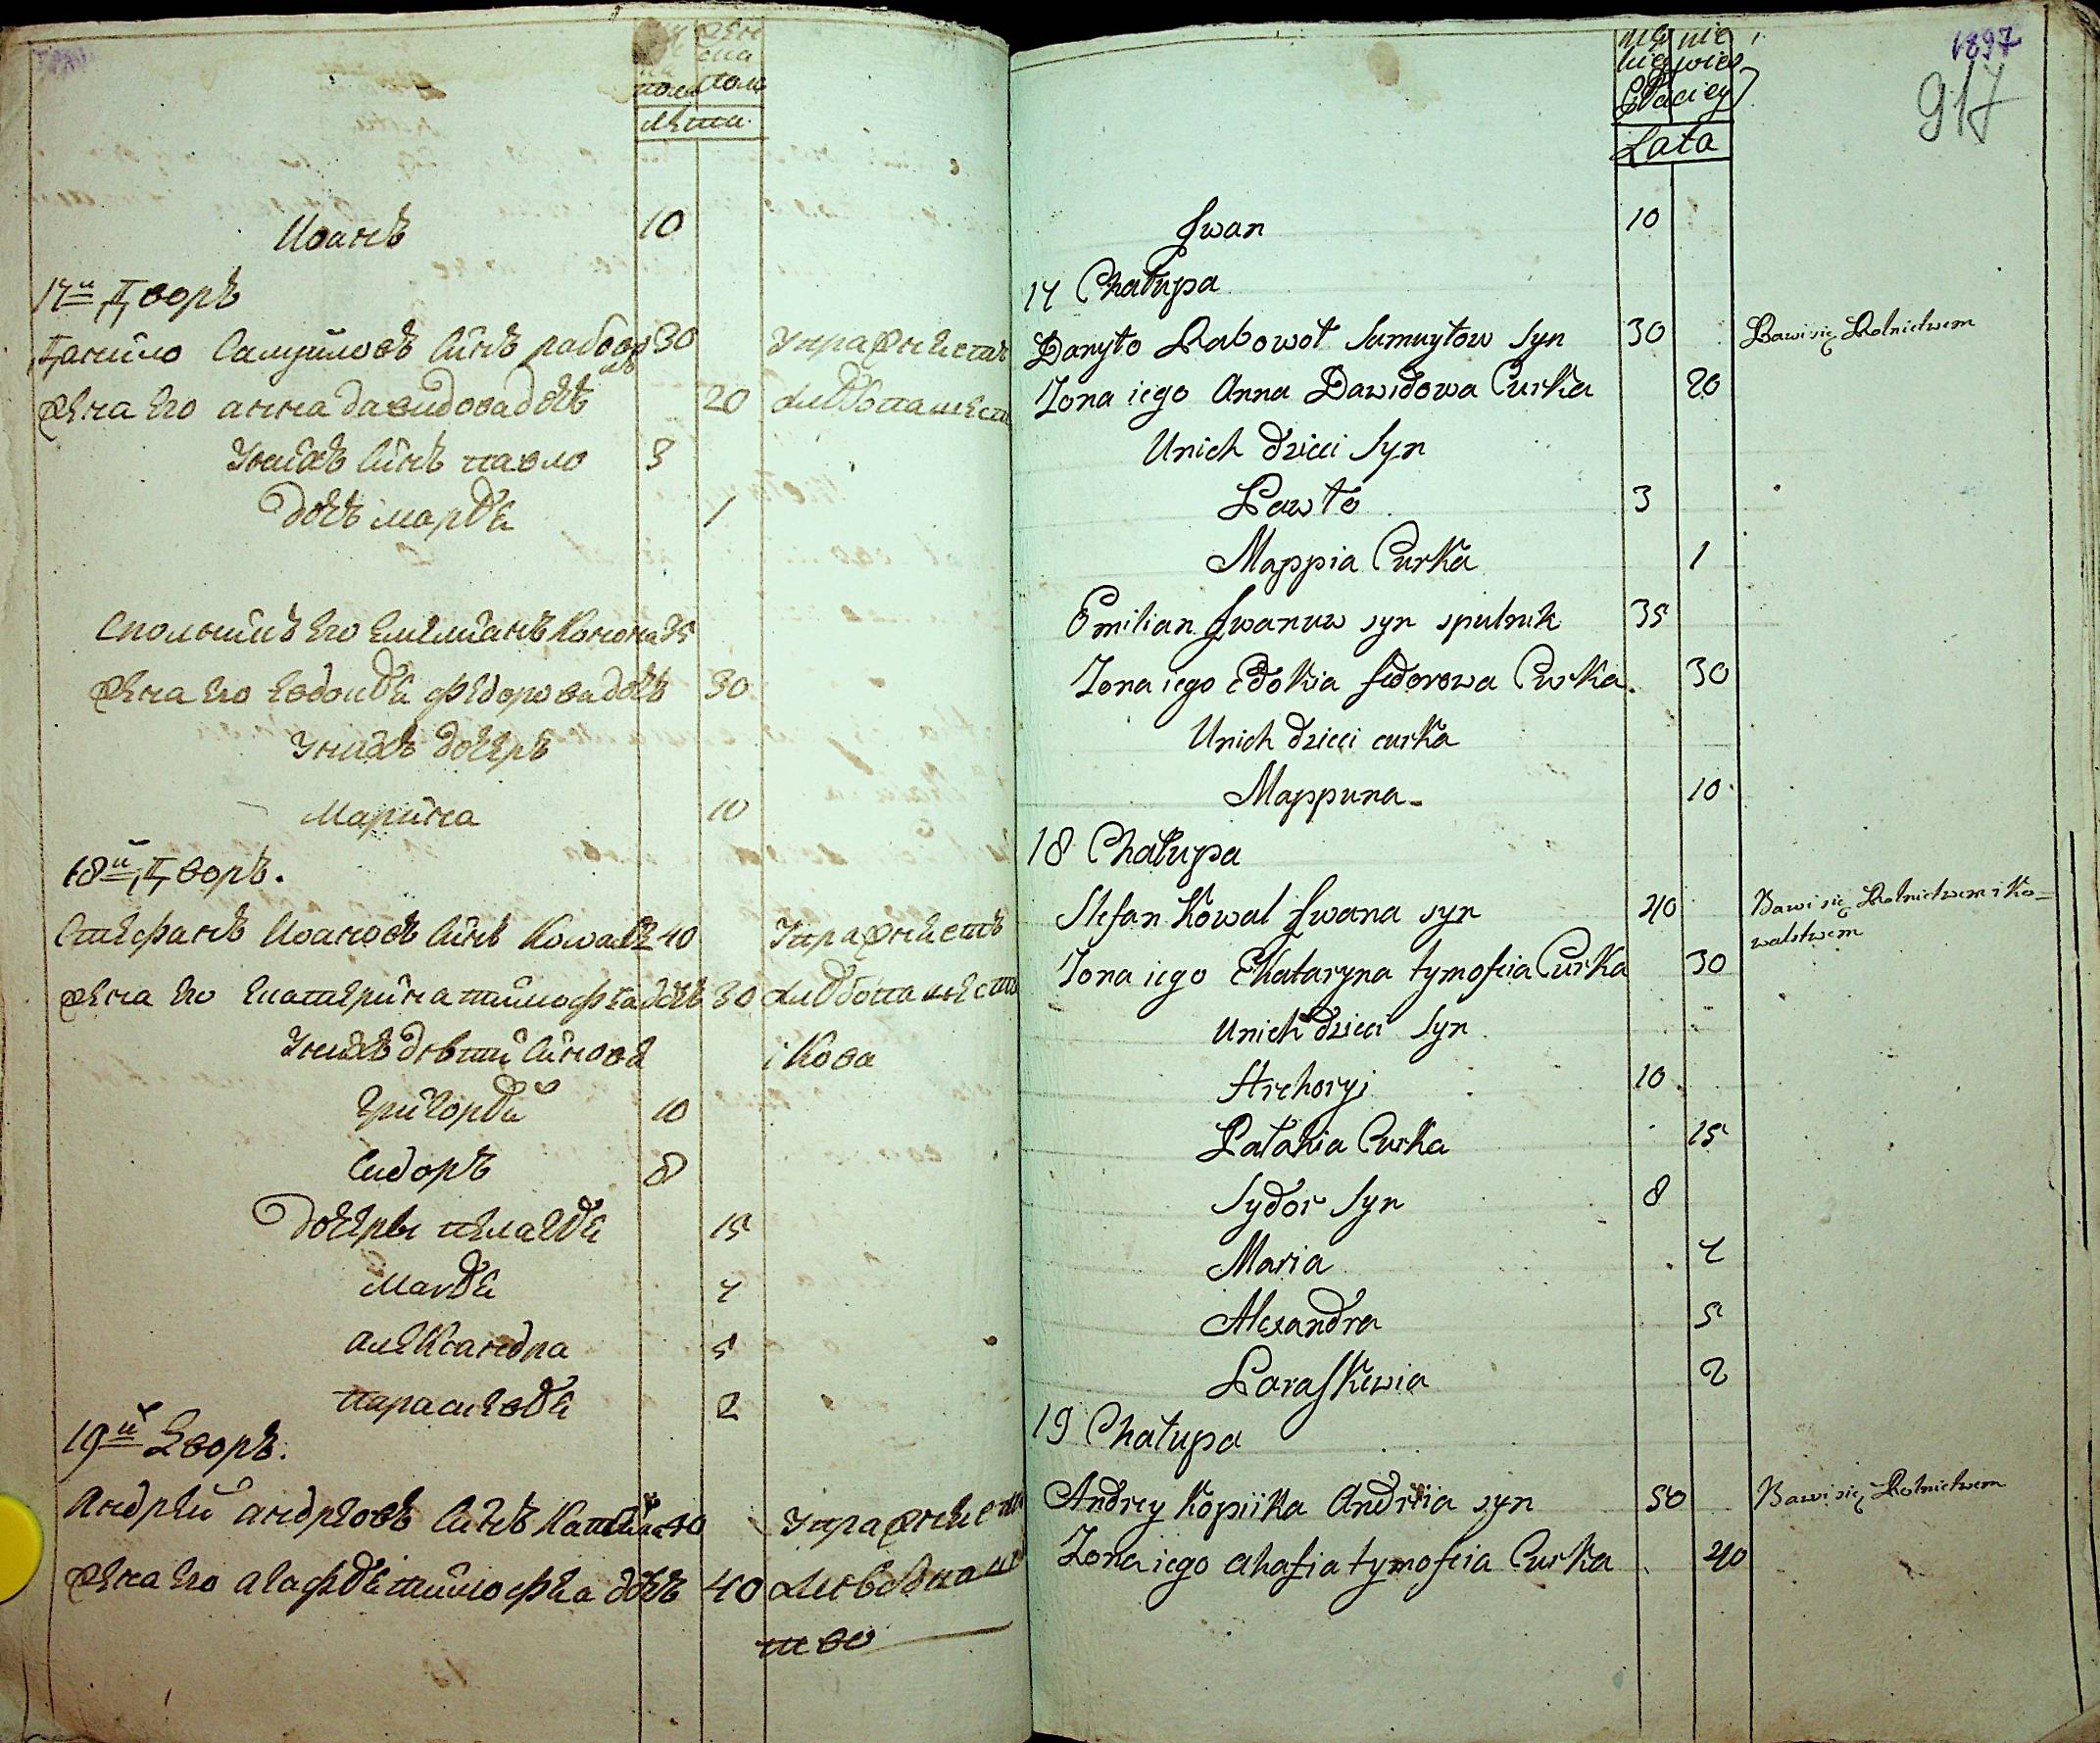 пола
лѣта
Иванъ 10
17й Дворъ
Данило Самуиловъ синъ 30
жена его анна давидова дочь 20
Унихъ синъ павло 3
дочь 1
Сполникъ его Емилианъ 35
жена его Федорова дочь 30
Унихъ дочерь
Марина 10
18й Дворъ.
Стефанъ Ивановъ синъ Коваль 40
жена его Екатерина тимофѣа дочь 30
Унихъ дѣти синове
і Кова
Григорій 10
Сидоръ 8
дочеры 15
Марія 4
александра 5
параскевія 2
19й Дворъ.
Андрей андреовъ синъ 40
жена его агафія тимофѣа дочь 40
тво
1897
917
Lata
Jwan 10
17 Chałupa
Danyło Rabowoł Samuyłow Syn 30 Bawi się Rolnictwem
Zona iego Anna Dawidowa Curka 20
Unich dzieci Syn
Pawło 3
Mappia Curka 1
Emilian Jwanuw syn spulnik 35
Zona iego Edokia fedorowa Curka 30
Unich dzieci curka
Mappuna 10
18 Chałupa
Stefan Kowal Jwana syn 40 Bawi się Rolnictwem i Ko-
walstwem
Zona iego Ekataryna tymofeia Curka 30
Unich dzieci Syn
Hrehoryi 10
Pałahia Curka 15
Sydor Syn 8
Maria 4
Alexandra 5
Paraskewia 2
19 Chałupa
Andrey Kopiika Andreia syn 50 Bawi się Rolnictwem
Zona iego Ahafia tymofeia Curka 40